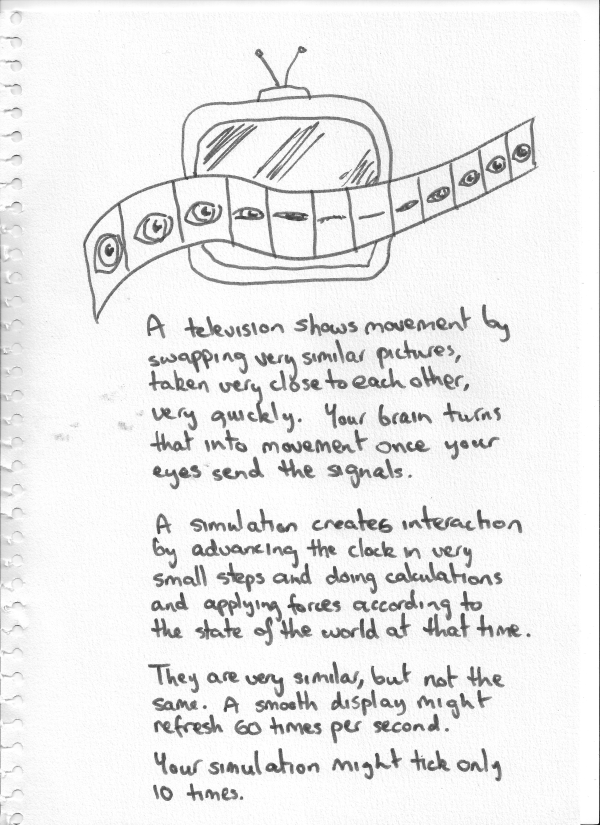 A television shows movement by
swapping very similar pictures,
taken very close to each other,
very quickly. Your brain turns
that into movement once your
eyes send the signals.
A simulation creates interaction
by advancing the clock in very
small steps and doing calculations
and applying forces according to
the state of the world at that time.
They are very similar, but not the
same. A smooth display might
refresh 60 times per second.
Your simulation might tick only
10 times.